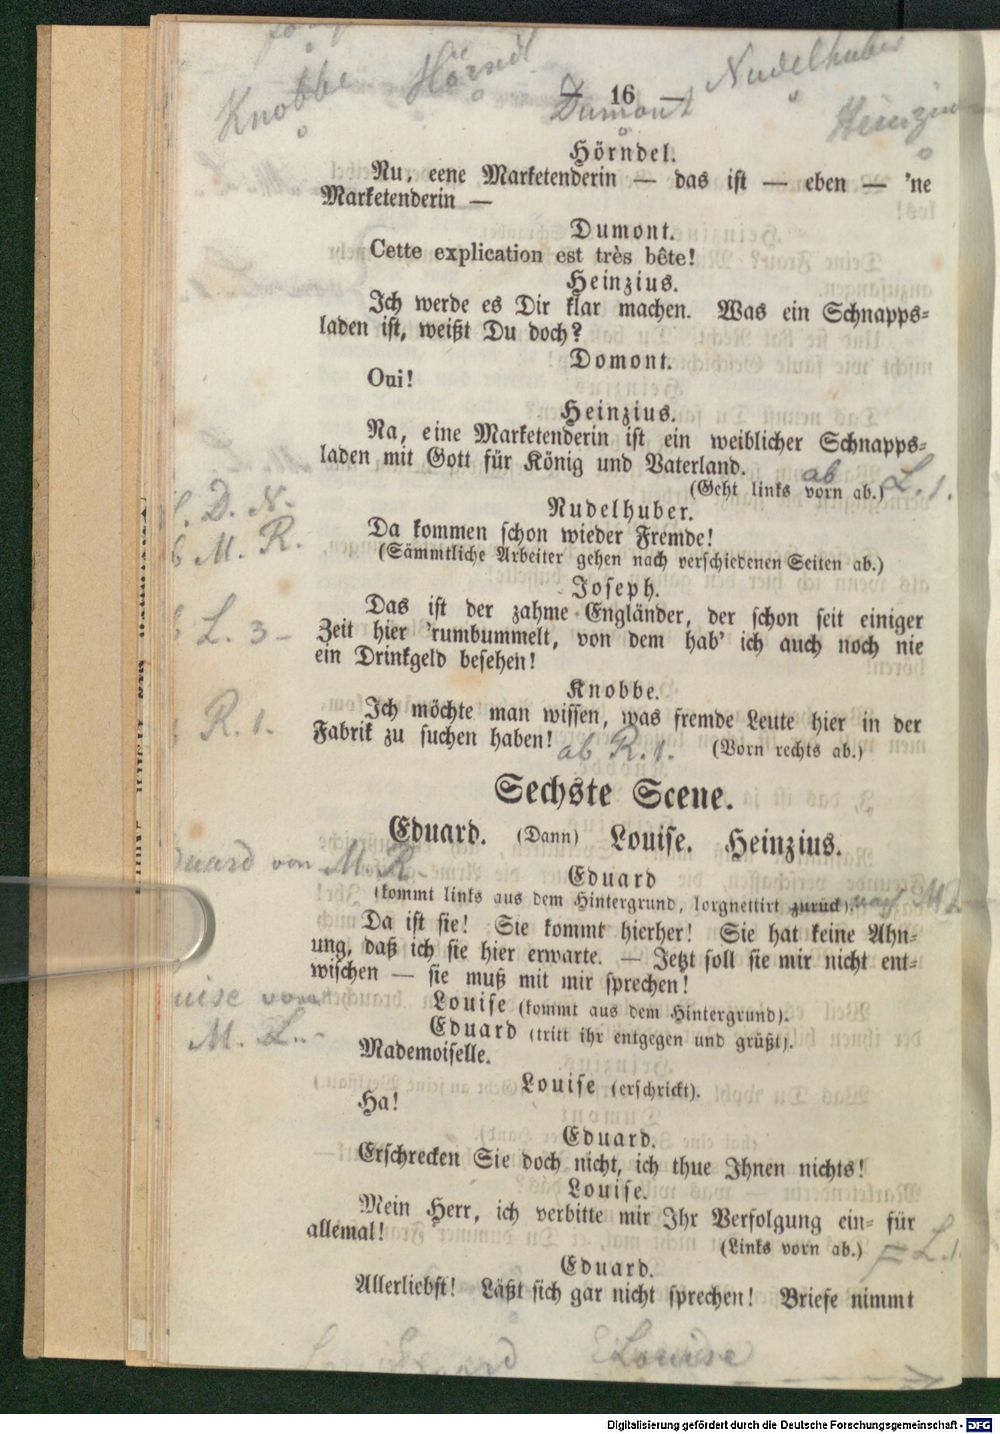 Knobbe Hörndl Nudelhuber
— 16 —
Dumont Heinzius
Hörndel.
Nu, eene Marketenderin — das ist — eben — 'ne
Marketenderin —
Dumont.
Cette explication est très bête!
Heinzius.
Ich werde es Dir klar machen. Was ein Schnapps-
laden ist, weißt Du doch?
Domont.
Oui!
Heinzius.
Na, eine Marketenderin ist ein weiblicher Schnapps-
laden mit Gott für König und Vaterland.
(Geht links vorn ab.) ab L. 1.
Nudelhuber.
D. N.
Da kommen schon wieder Fremde!
M. R.
(Sämmtliche Arbeiter gehen nach verschiedenen Seiten ab.)
Joseph.
Das ist der zahme Engländer, der schon seit einiger
L. 3
Zeit hier 'rumbummelt, von dem hab' ich auch noch nie
ein Drinkgeld besehen!
Knobbe.
Ich möchte man wissen, was fremde Leute hier in der
R. 1.
Fabrik zu suchen haben! ab R. 1. (Vorn rechts ab.)
Sechste Scene.
Eduard. (Dann) Louise. Heinzius.
von M. R.
Eduard
(kommt links aus dem Hintergrund, lorgnettirt zurück). nach M L
Da ist sie! Sie kommt hierher! Sie hat keine Ahn-
ung, daß ich sie hier erwarte. — Jetzt soll sie mir nicht ent-
wischen — sie muß mit mir sprechen!
Louise (kommt aus dem Hintergrund).
M. L.
Eduard (tritt ihr entgegen und grüßt).
Mademoiselle.
Louise (erschrickt).
Ha!
Eduard.
Erschrecken Sie doch nicht, ich thue Ihnen nichts!
Louise.
Mein Herr, ich verbitte mir Ihr Verfolgung ein- für
allemal!
(Links vorn ab.) L. 1
Eduard.
Allerliebst! Läßt sich gar nicht sprechen! Briefe nimmt
Louise
Digitalisierung gefördert durch die Deutsche Forschungsgemeinschaft - DFG